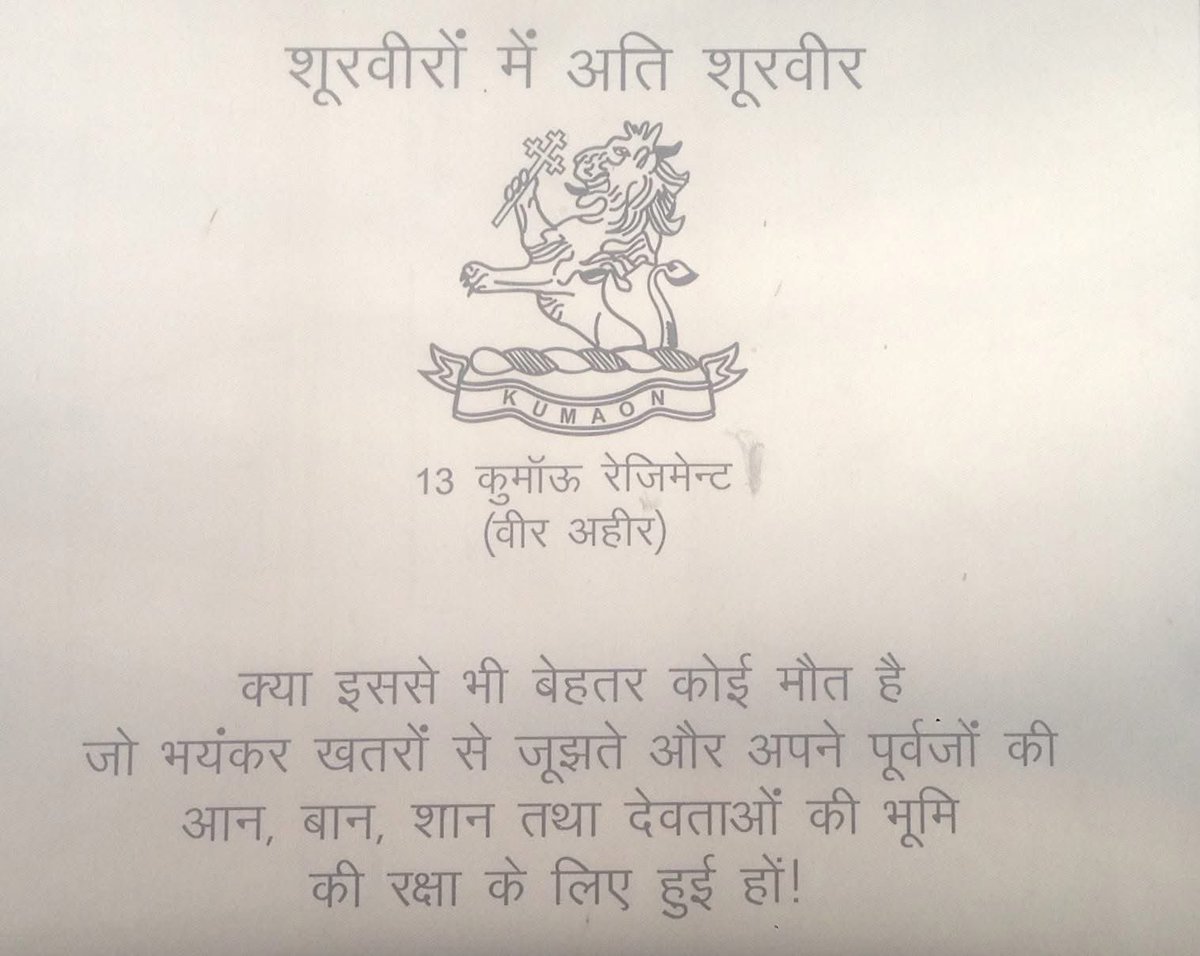 शूरवीरों में अति शूरवीर
KUMAON
13 कुमॉऊ रेजिमेन्ट
(वीर अहीर)
क्या इससे भी बेहतर कोई मौत है
जो भयंकर खतरों से जूझते और अपने पूर्वजों की
आन, बान, शान तथा देवताओं की भूमि
की रक्षा के लिए हुई हों!